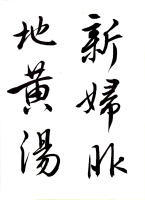 新婦派
地黄湯